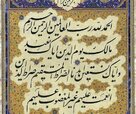 الحمد لله رب العالمین الرحمن الرحیم
مالک یوم الدین ایاک نعبد
وایاک نستعین اهدنا الصراط المستقیم صراط الذین
انعمت علیهم غیر المغضوب علیهم